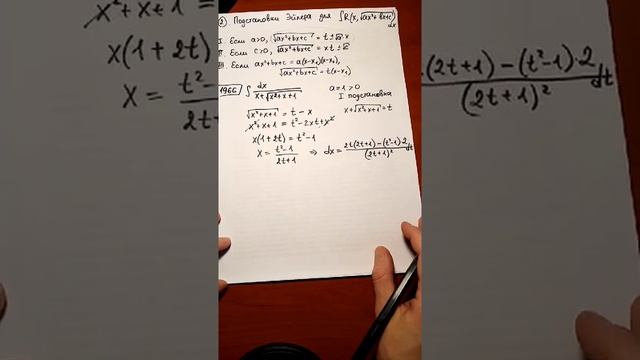 2. Подстановки Эйлера для ∫R(x, √ax²+bx+c) dx
I. Если a>0, √ax²+bx+c = t ± √a x
II. Если c>0, √ax²+bx+c = xt ± √c
III. Если ax²+bx+c = a(x-x₁)(x-x₂),
√ax²+bx+c = t(x-x₁)
1966 ∫ dx / x+√x²+x+1 a=1>0
I подстановка
√x²+x+1 = t - x x+√x²+x+1 = t
x²+x+1 = t²-2xt+x²
x(1+2t) = t²-1
x = t²-1 / 2t+1 ⇒ dx = 2t(2t+1)-(t²-1)2 / (2t+1)² dt